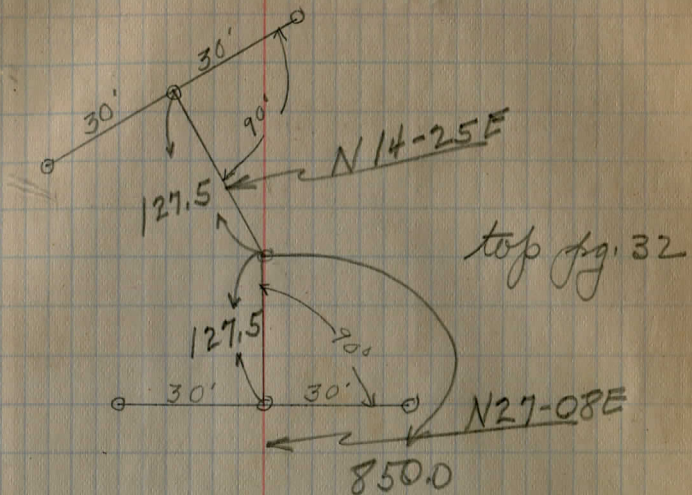 30'
30'
90'
N 14-25E
127.5
top pg. 32
127.5
90°
30'
30'
N27-08E
850.0